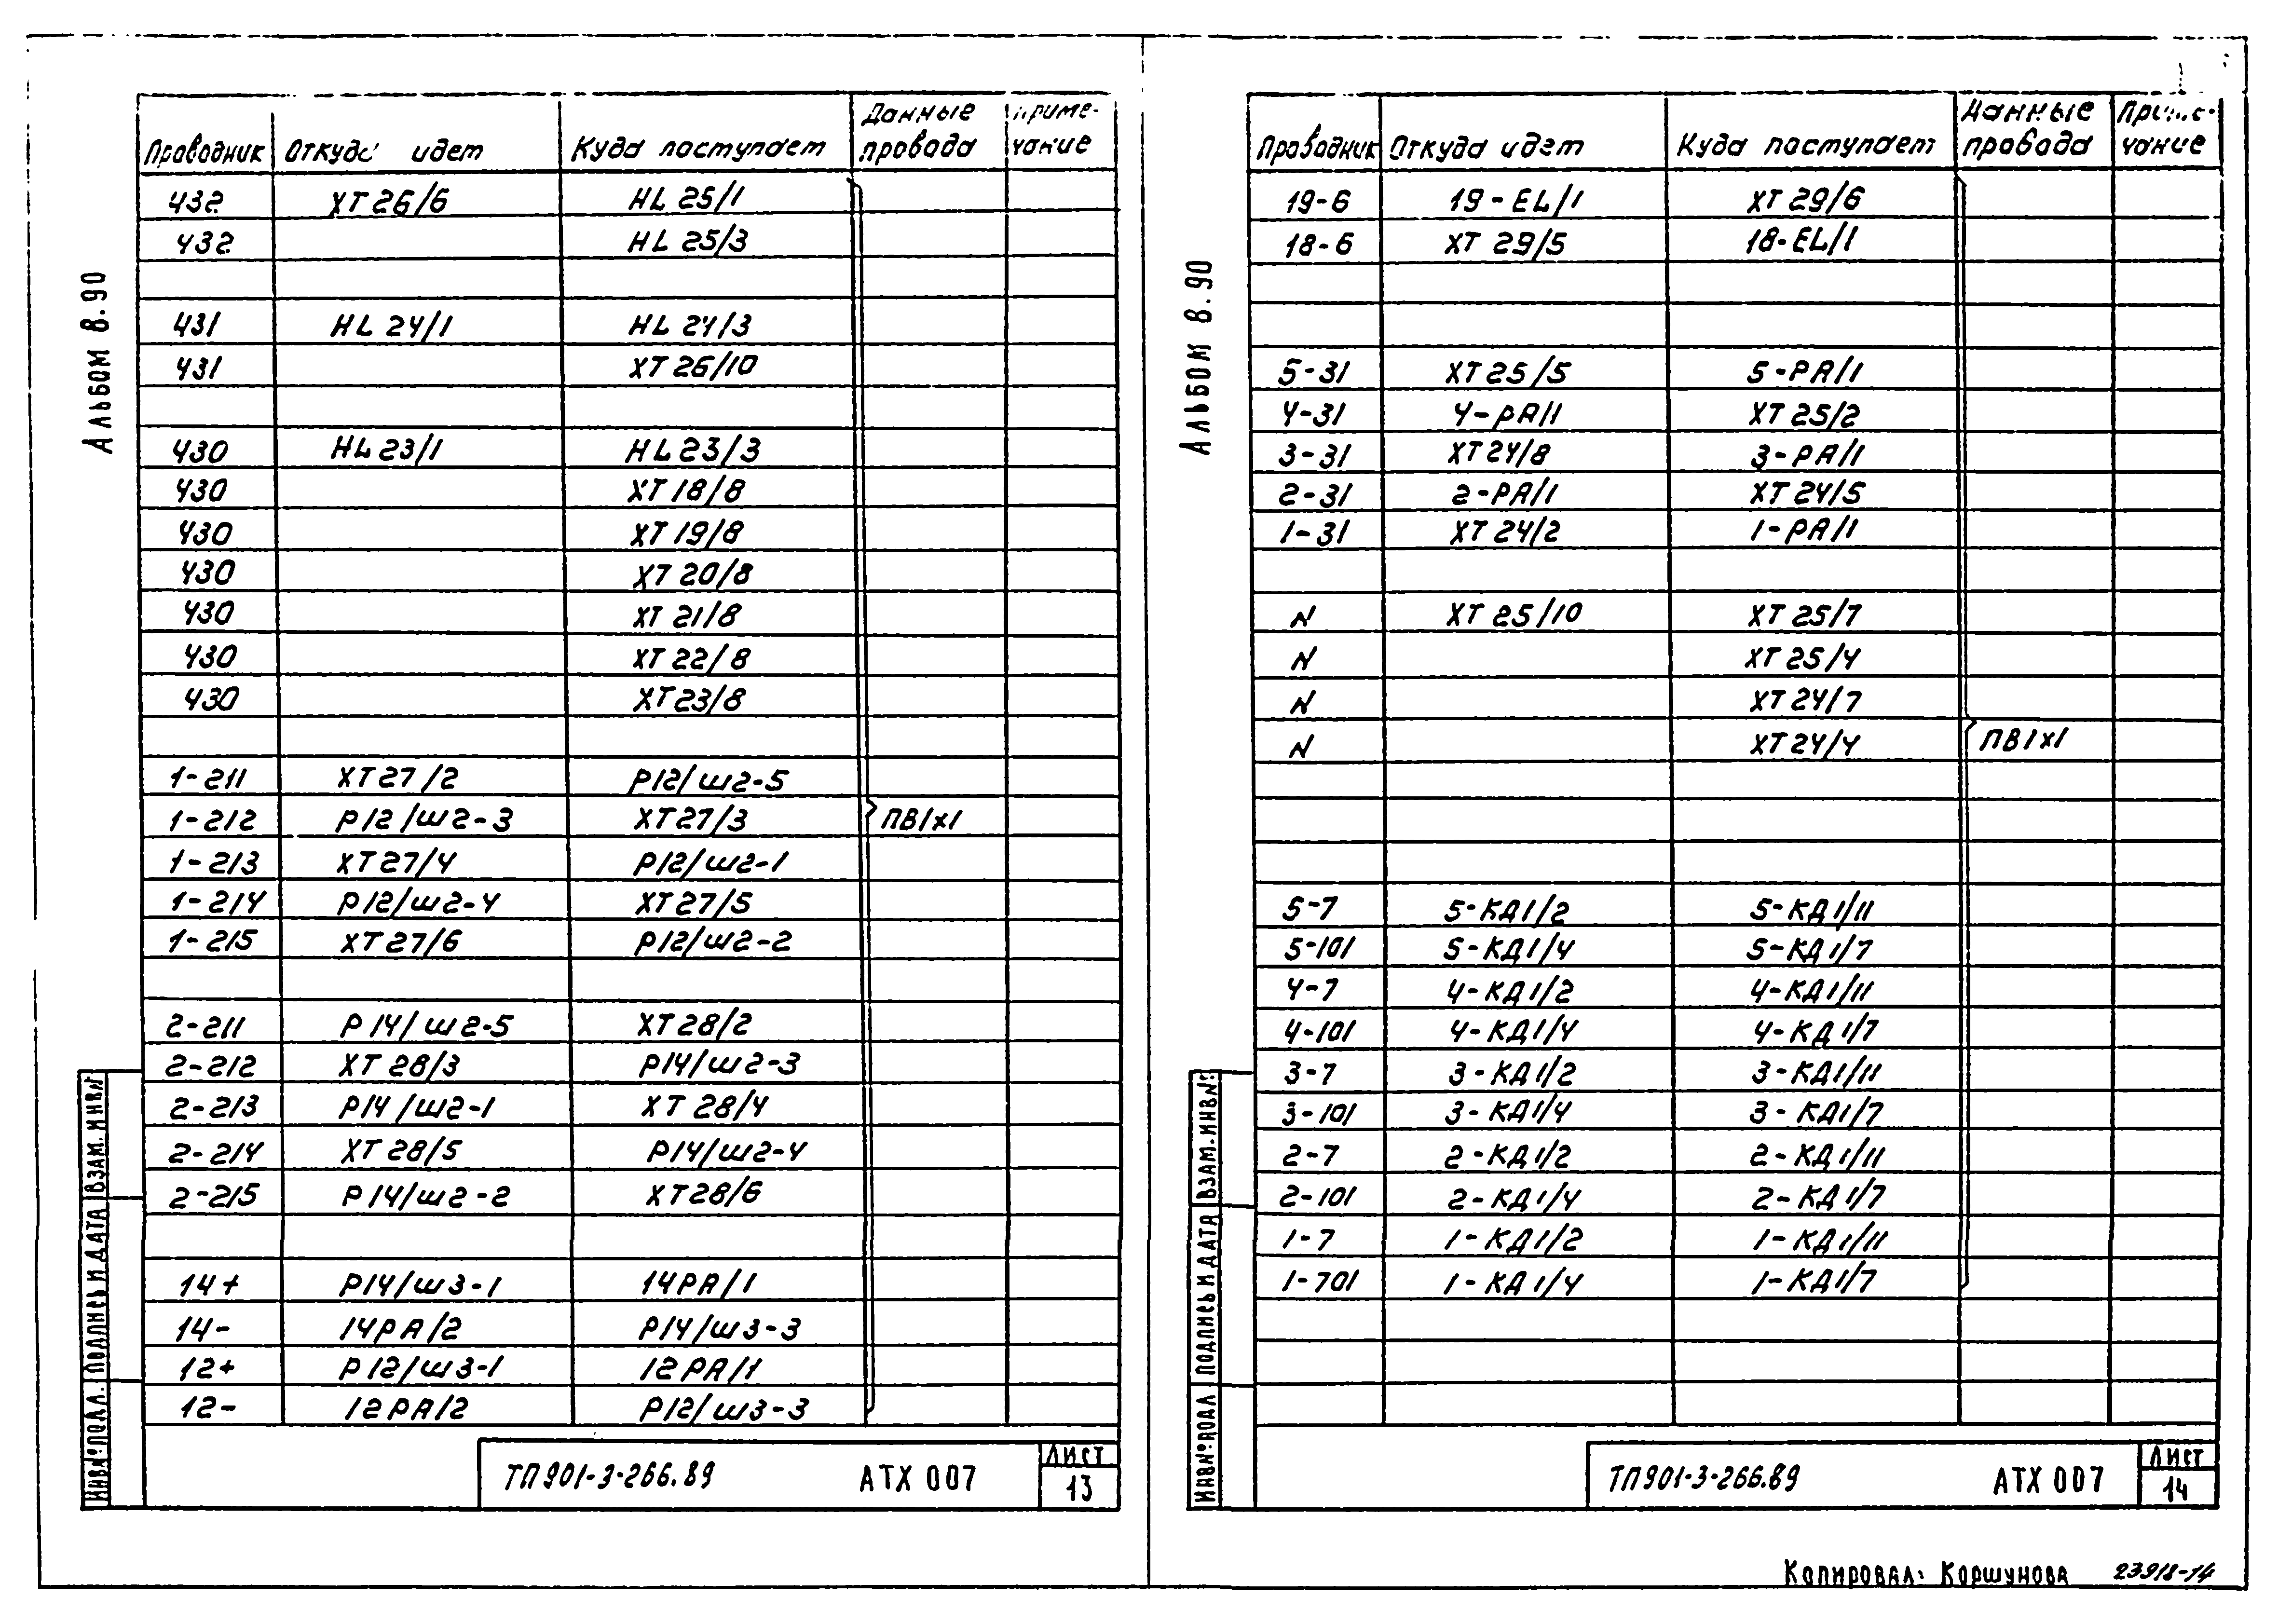 Альбом 8.90
Проводник Откуда идет Куда поступает Данные провода Приме-чание
432 XT26/6 HL 25/1
432 HL 25/3
431 HL 24/1 HL 24/3
431 XT26/10
430 HL23/1 HL23/3
430 XT18/8
430 XT19/8
430 XT20/8
430 XT21/8
430 XT22/8
430 XT23/8
1-211 XT27/2 P12/ш2-5
1-212 P12/ш2-3 XT27/3 ПВ1х1
1-213 XT27/4 P12/ш2-1
1-214 P12/ш2-4 XT27/5
1-215 XT27/6 P12/ш2-2
2-211 P14/ш2-5 XT28/2
2-212 XT28/3 P14/ш2-3
2-213 P14/ш2-1 XT28/4
2-214 XT28/5 P14/ш2-4
2-215 P14/ш2-2 XT28/6
14+ P14/ш3-1 14PA/1
14- 14PA/2 P14/ш3-3
12+ P12/ш3-1 12PA/1
12- 12PA/2 P12/ш3-3
ИНВ№ПОДЛ. ПОДПИСЬ И ДАТА ВЗАМ.ИНВ№
ТП901-3-266.89 АТХ 007 Лист
13
Альбом 8.90
Проводник Откуда идет Куда поступает Данные провода Приме-чание
19-6 19-EL/1 XT29/6
18-6 XT29/5 18-EL/1
5-31 XT25/5 5-PA/1
4-31 4-PA/1 XT25/2
3-31 XT24/8 3-PA/1
2-31 2-PA/1 XT24/5
1-31 XT24/2 1-PA/1
N XT25/10 XT25/7
N XT25/4
N XT24/7
N XT24/4 ПВ1х1
5-7 5-КД1/2 5-КД1/11
5-101 5-КД1/4 5-КД1/7
4-7 4-КД1/2 4-КД1/11
4-101 4-КД1/4 4-КД1/7
3-7 3-КД1/2 3-КД1/11
3-101 3-КД1/4 3-КД1/7
2-7 2-КД1/2 2-КД1/11
2-101 2-КД1/4 2-КД1/7
1-7 1-КД1/2 1-КД1/11
1-701 1-КД1/4 1-КД1/7
ИНВ№ПОДЛ ПОДПИСЬ И ДАТА ВЗАМ.ИНВ№
ТП901-3-266.89 АТХ 007 Лист
14
Копировал: Коршунова 23918-14